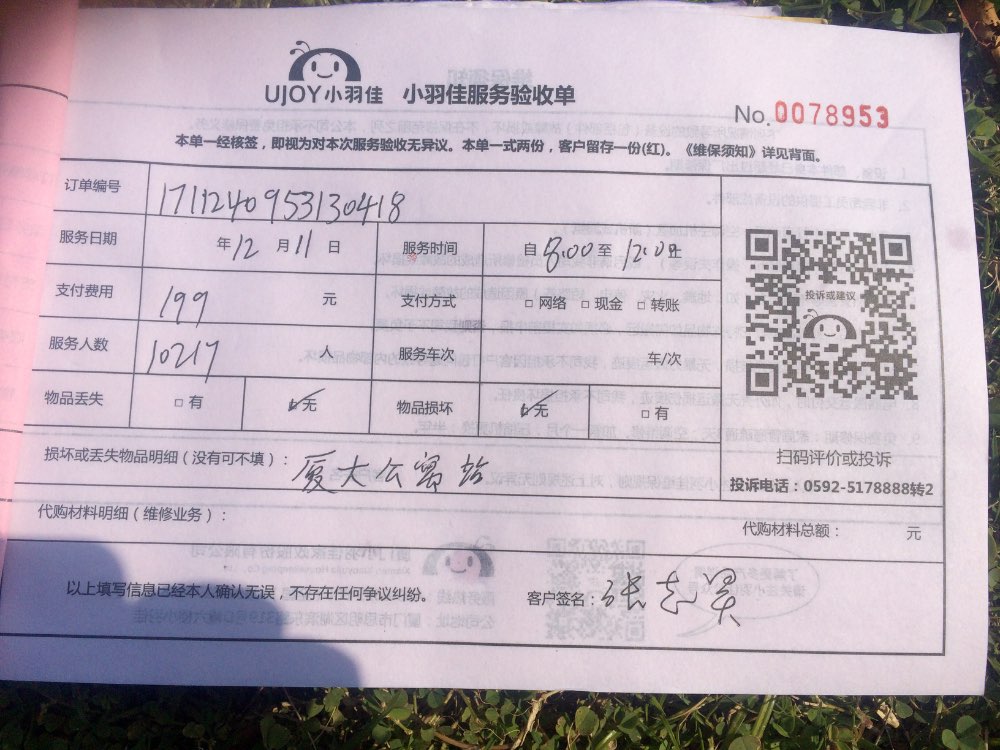 UJOY小羽佳 小羽佳服务验收单
No.0078953
本单一经核签，即视为对本次服务验收无异议。本单一式两份，客户留存一份(红)。《维保须知》详见背面。
订单编号 171124095313​0418
服务日期 年12月11日 服务时间 自8:00至12:00止
支付费用 199 元 支付方式 □网络 □现金 □转账
投诉或建议
服务人数 10217 人 服务车次 车/次
物品丢失 □有 ☑无 物品损坏 ☑无 □有
损坏或丢失物品明细（没有可不填）：厦大公寓站
扫码评价或投诉
投诉电话：0592-5178888转2
代购材料明细（维修业务）： 代购材料总额： 元
以上填写信息已经本人确认无误，不存在任何争议纠纷。 客户签名：张志